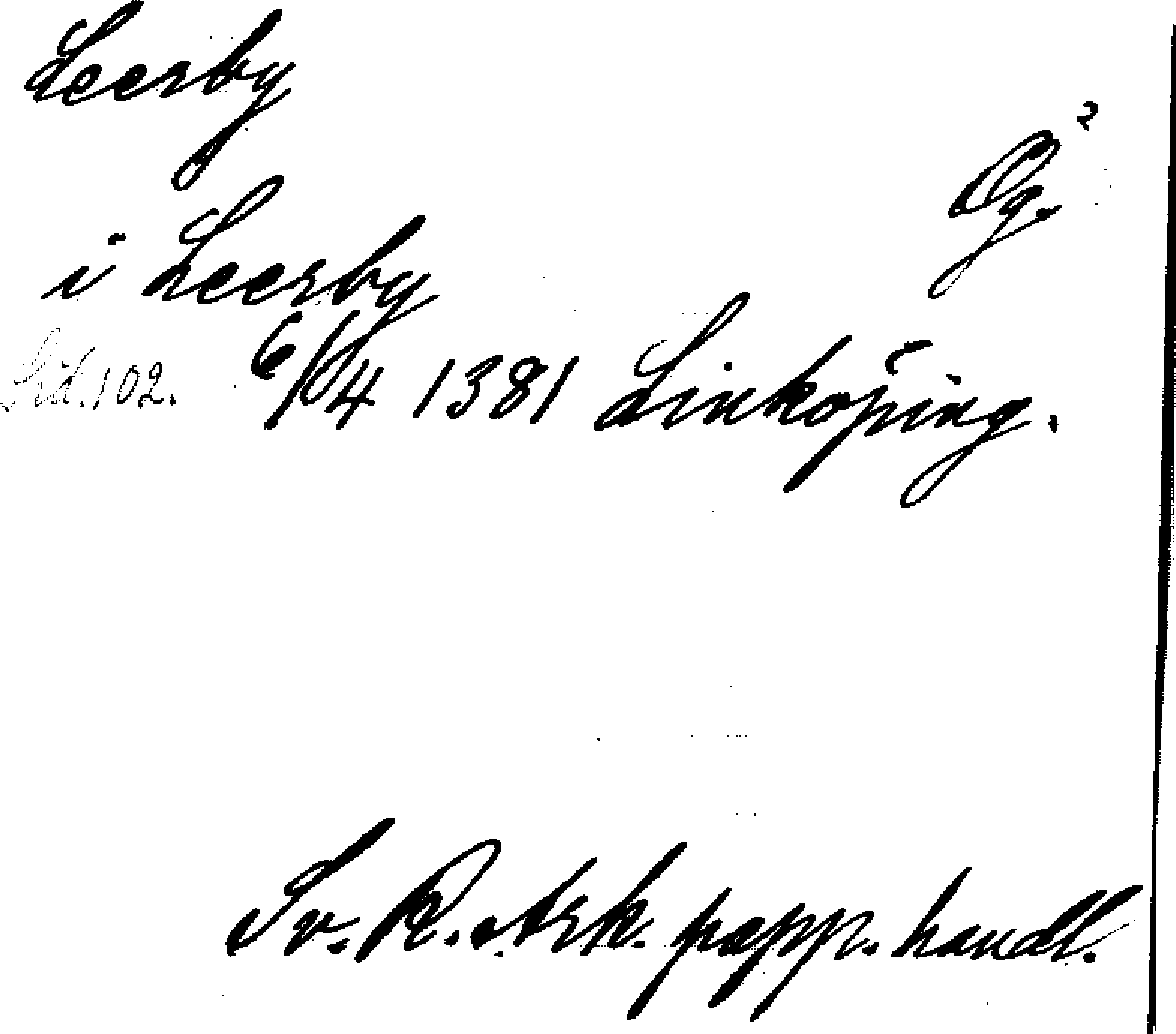 Leerby
Ög. ?
i Leerby
Sid. 102. 6/4 1381 Linköping.
Sv. R. Ark. papp. handl.